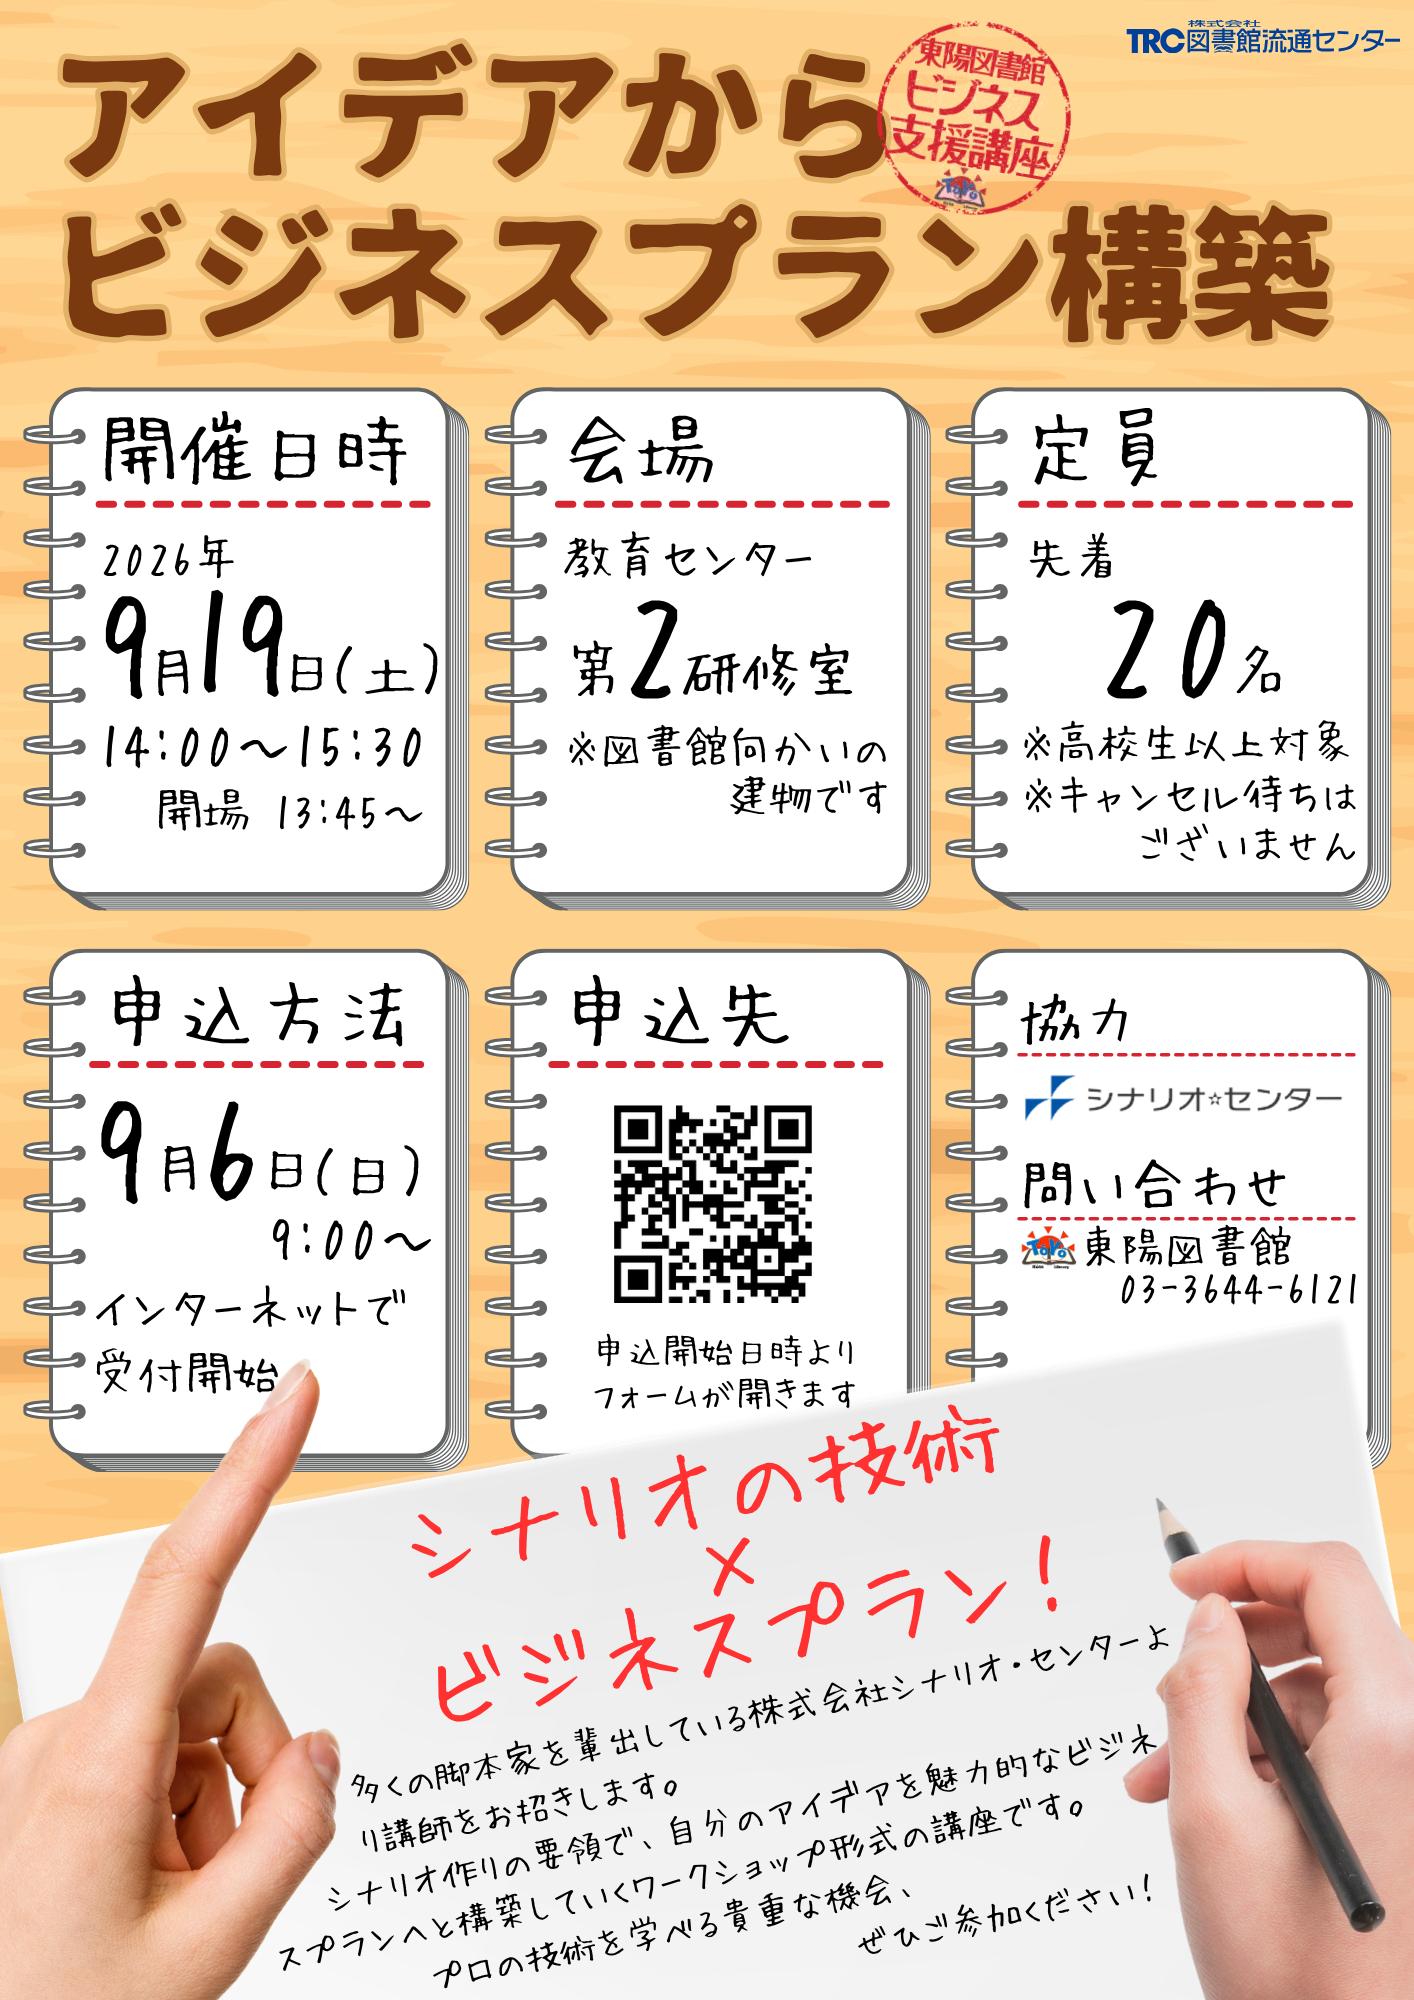 株式会社
TRC図書館流通センター
アイデアから
東陽図書館
ビジネス
支援講座
ToYo
ビジネスプラン構築
開催日時
2026年
9月19日(土)
14:00～15:30
開場 13:45～
会場
教育センター
第2研修室
※図書館向かいの
建物です
定員
先着
20名
※高校生以上対象
※キャンセル待ちは
ございません
申込方法
9月6日(日)
9:00～
インターネットで
受付開始
申込先
申込開始日時より
フォームが開きます
協力
シナリオ☆センター
問い合わせ
ToYo
東陽図書館
03-3644-6121
シナリオの技術
×
ビジネスプラン！
多くの脚本家を輩出している株式会社シナリオ・センターよ
り講師をお招きします。
シナリオ作りの要領で、自分のアイデアを魅力的なビジネ
スプランへと構築していくワークショップ形式の講座です。
プロの技術を学べる貴重な機会、
ぜひご参加ください！